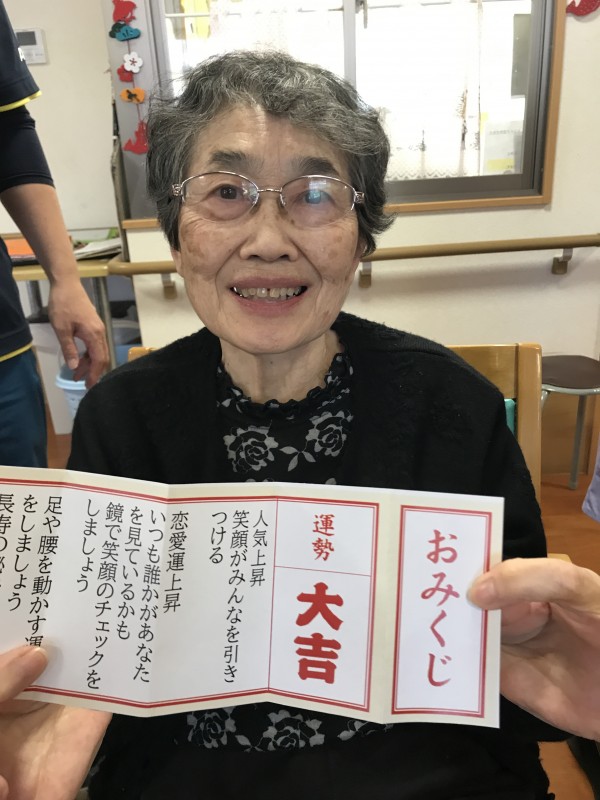 おみくじ
運勢
大吉
人気上昇
笑顔がみんなを引き
つける
恋愛運上昇
いつも誰かがあなた
を見ているかも
鏡で笑顔のチェックを
しましょう
足や腰を動かす運
をしましょう
長寿の